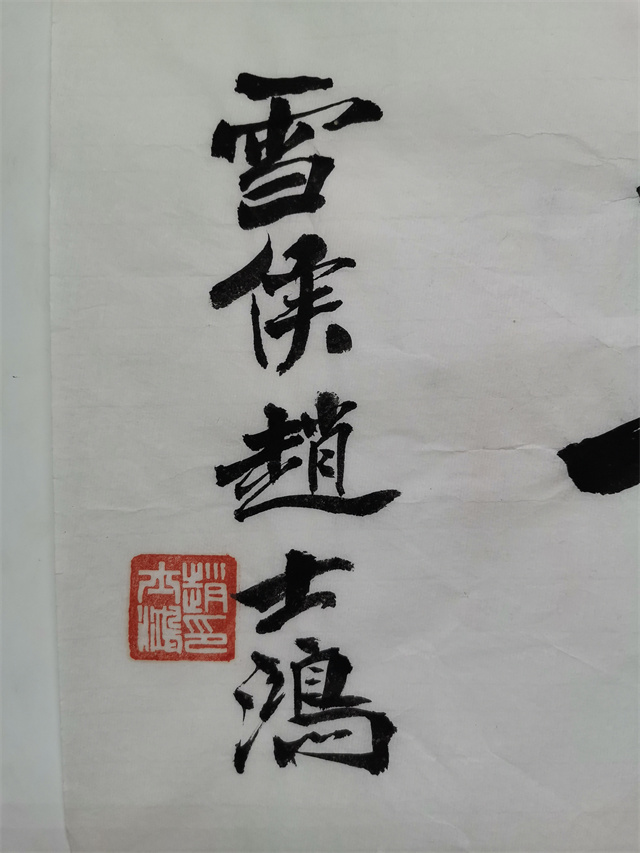 雪侯趙士鴻
趙印
士鴻